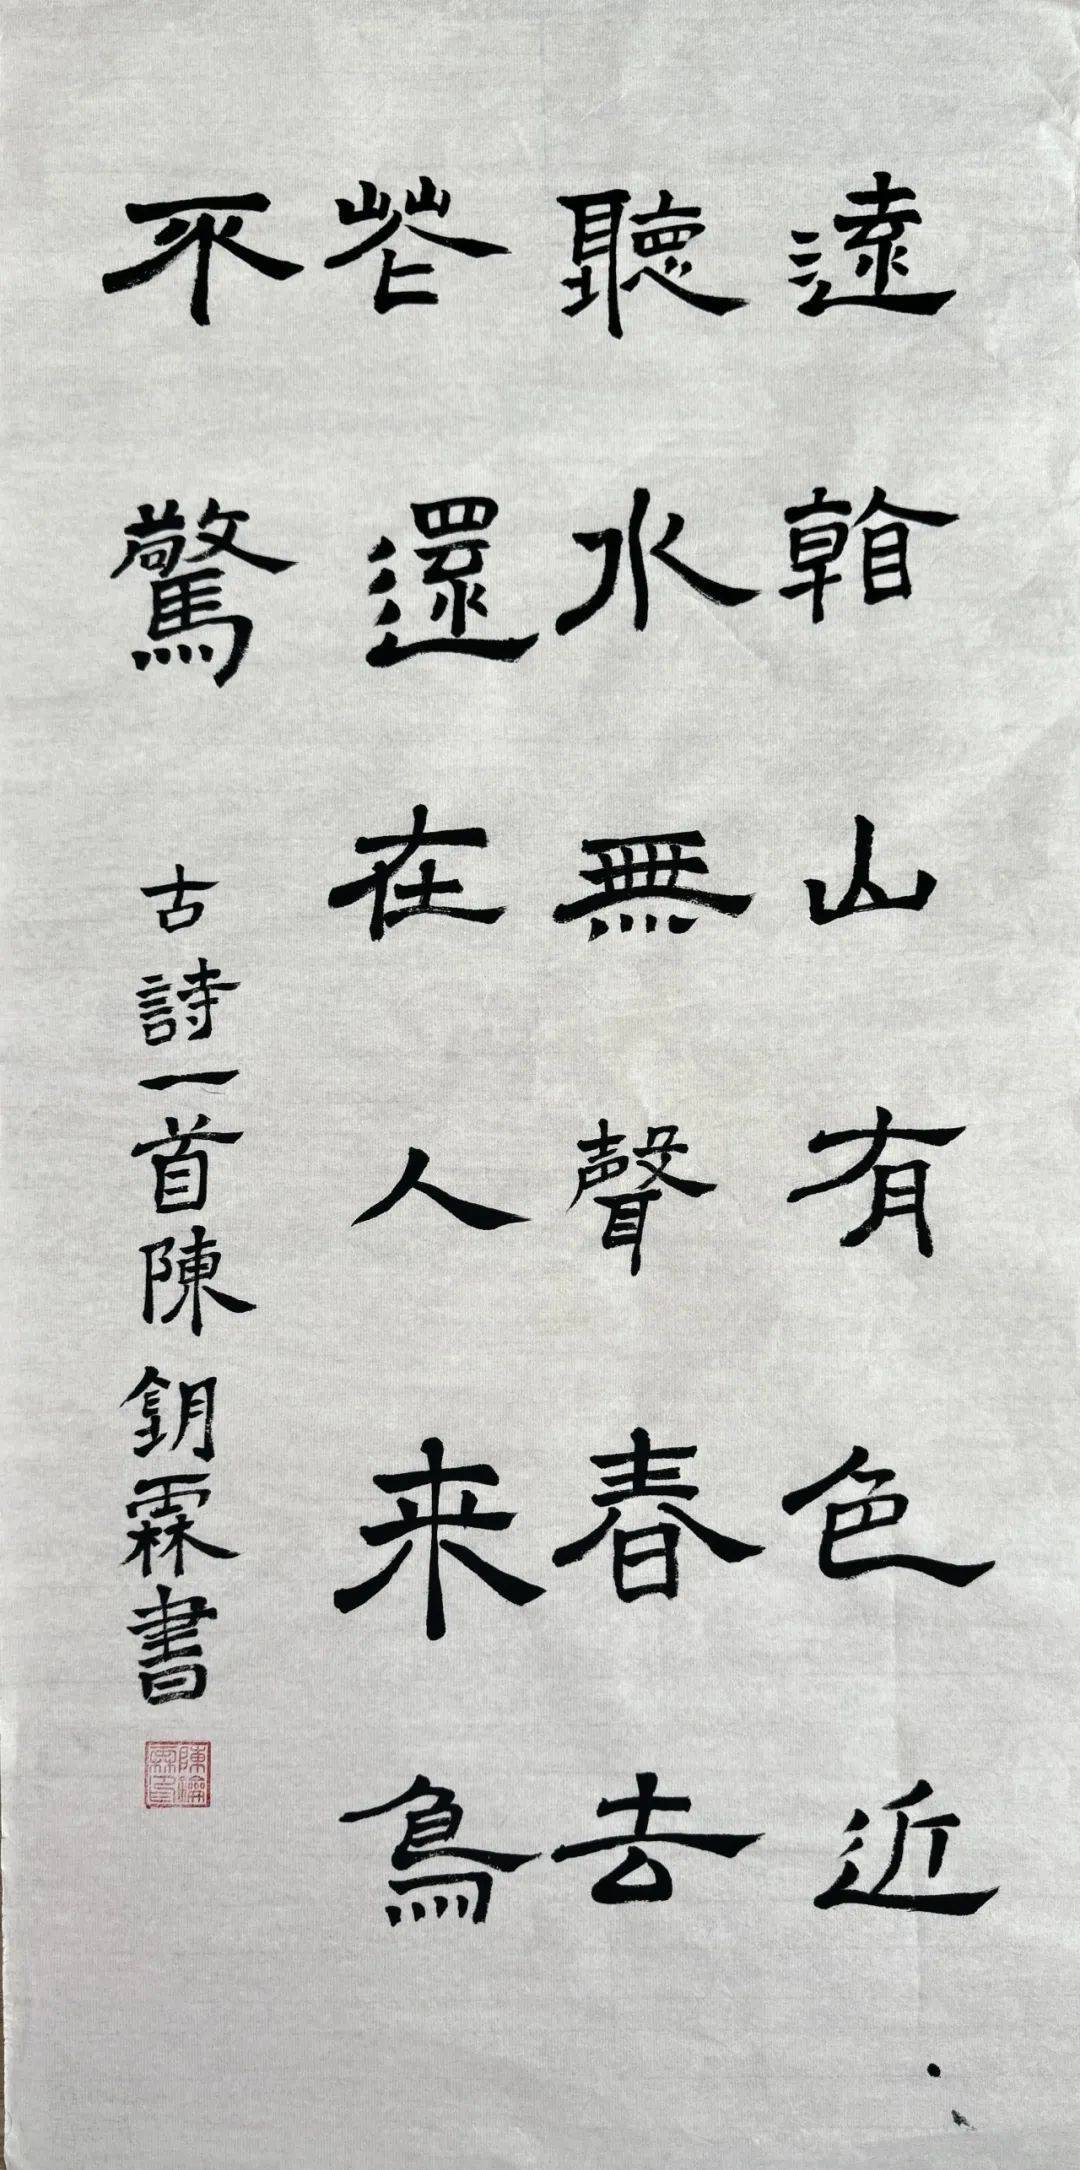 遠看山有色近
聽水無聲春去
花還在人来鳥
不驚
古詩一首陳鈅霖書